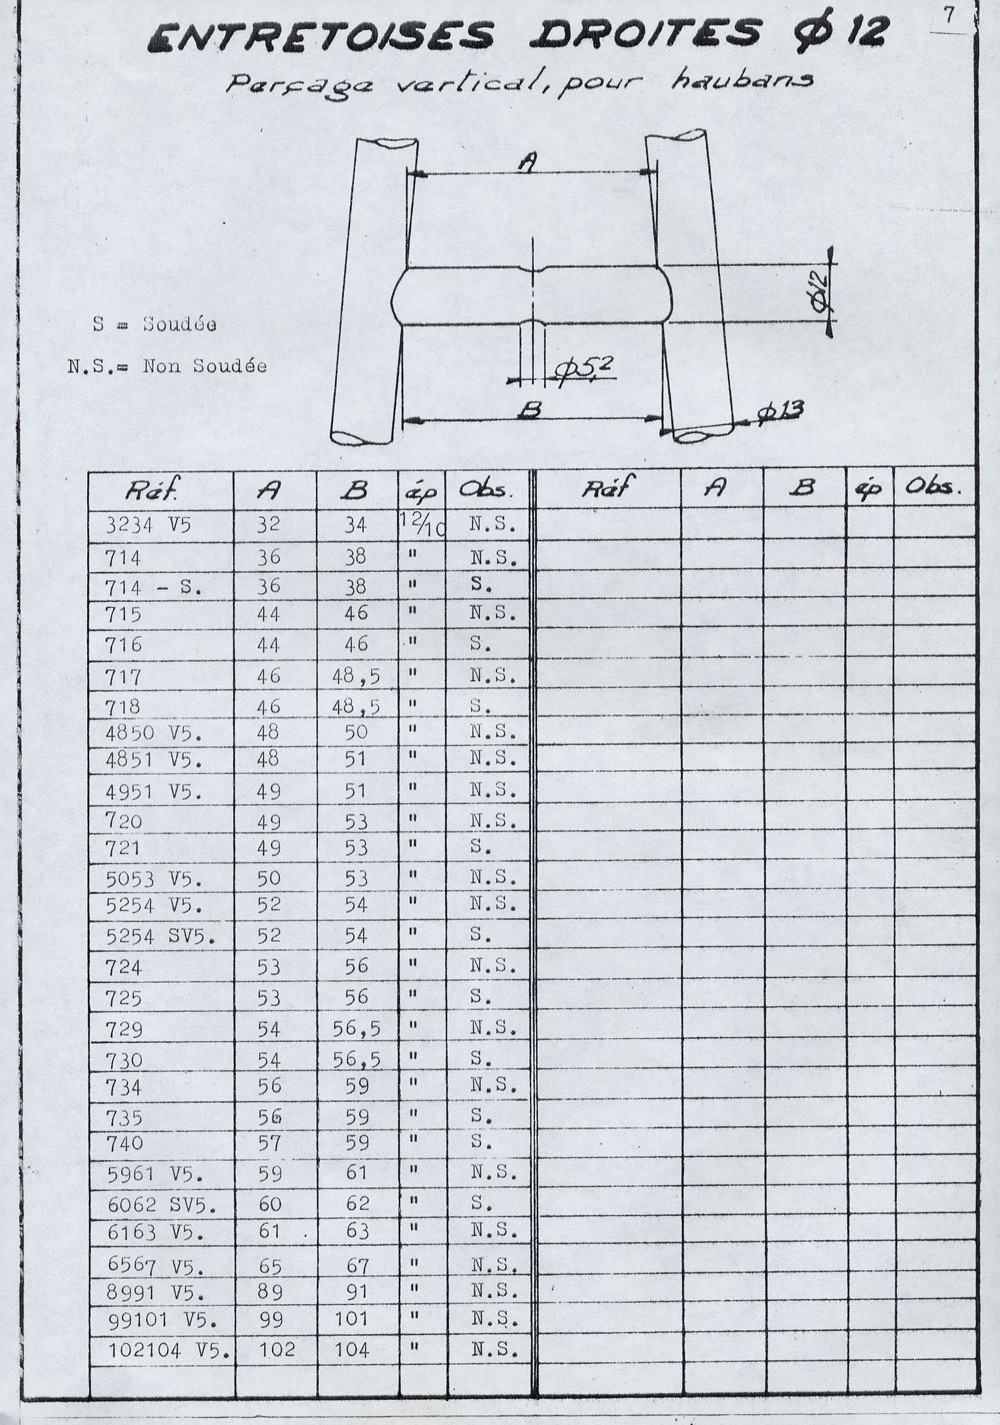 7
ENTRETOISES DROITES ϕ 12
Perçage vertical, pour haubans
A
ϕ12
S = Soudée
N.S.= Non Soudée
ϕ5,2
B
ϕ13
Réf. A B ép Obs. Réf A B ép Obs.
3234 V5 32 34 12/10 N.S.
714 36 38 " N.S.
714 - S. 36 38 " S.
715 44 46 " N.S.
716 44 46 " S.
717 46 48,5 " N.S.
718 46 48,5 " S.
4850 V5. 48 50 " N.S.
4851 V5. 48 51 " N.S.
4951 V5. 49 51 " N.S.
720 49 53 " N.S.
721 49 53 " S.
5053 V5. 50 53 " N.S.
5254 V5. 52 54 " N.S.
5254 SV5. 52 54 " S.
724 53 56 " N.S.
725 53 56 " S.
729 54 56,5 " N.S.
730 54 56,5 " S.
734 56 59 " N.S.
735 56 59 " S.
740 57 59 " S.
5961 V5. 59 61 " N.S.
6062 SV5. 60 62 " S.
6163 V5. 61 63 " N.S.
6567 V5. 65 67 " N.S.
8991 V5. 89 91 " N.S.
99101 V5. 99 101 " N.S.
102104 V5. 102 104 " N.S.